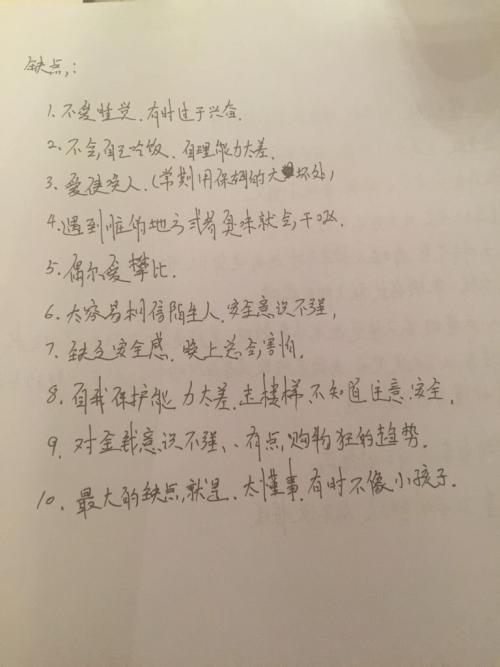 缺点:
1. 不爱睡觉. 有时过于兴奋.
2. 不会自己吃饭. 自理能力太差.
3. 爱使唤人. (常期用保姆的大坏处)
4. 遇到脏的地方或者臭味就会干呕.
5. 偶尔爱攀比.
6. 太容易相信陌生人. 安全意识不强,
7. 缺乏安全感. 晚上总会害怕.
8. 自我保护能力太差. 走楼梯不知道注意安全.
9. 对金钱意识不强、有点购物狂的趋势.
10. 最大的缺点,就是. 太懂事. 有时不像小孩子.